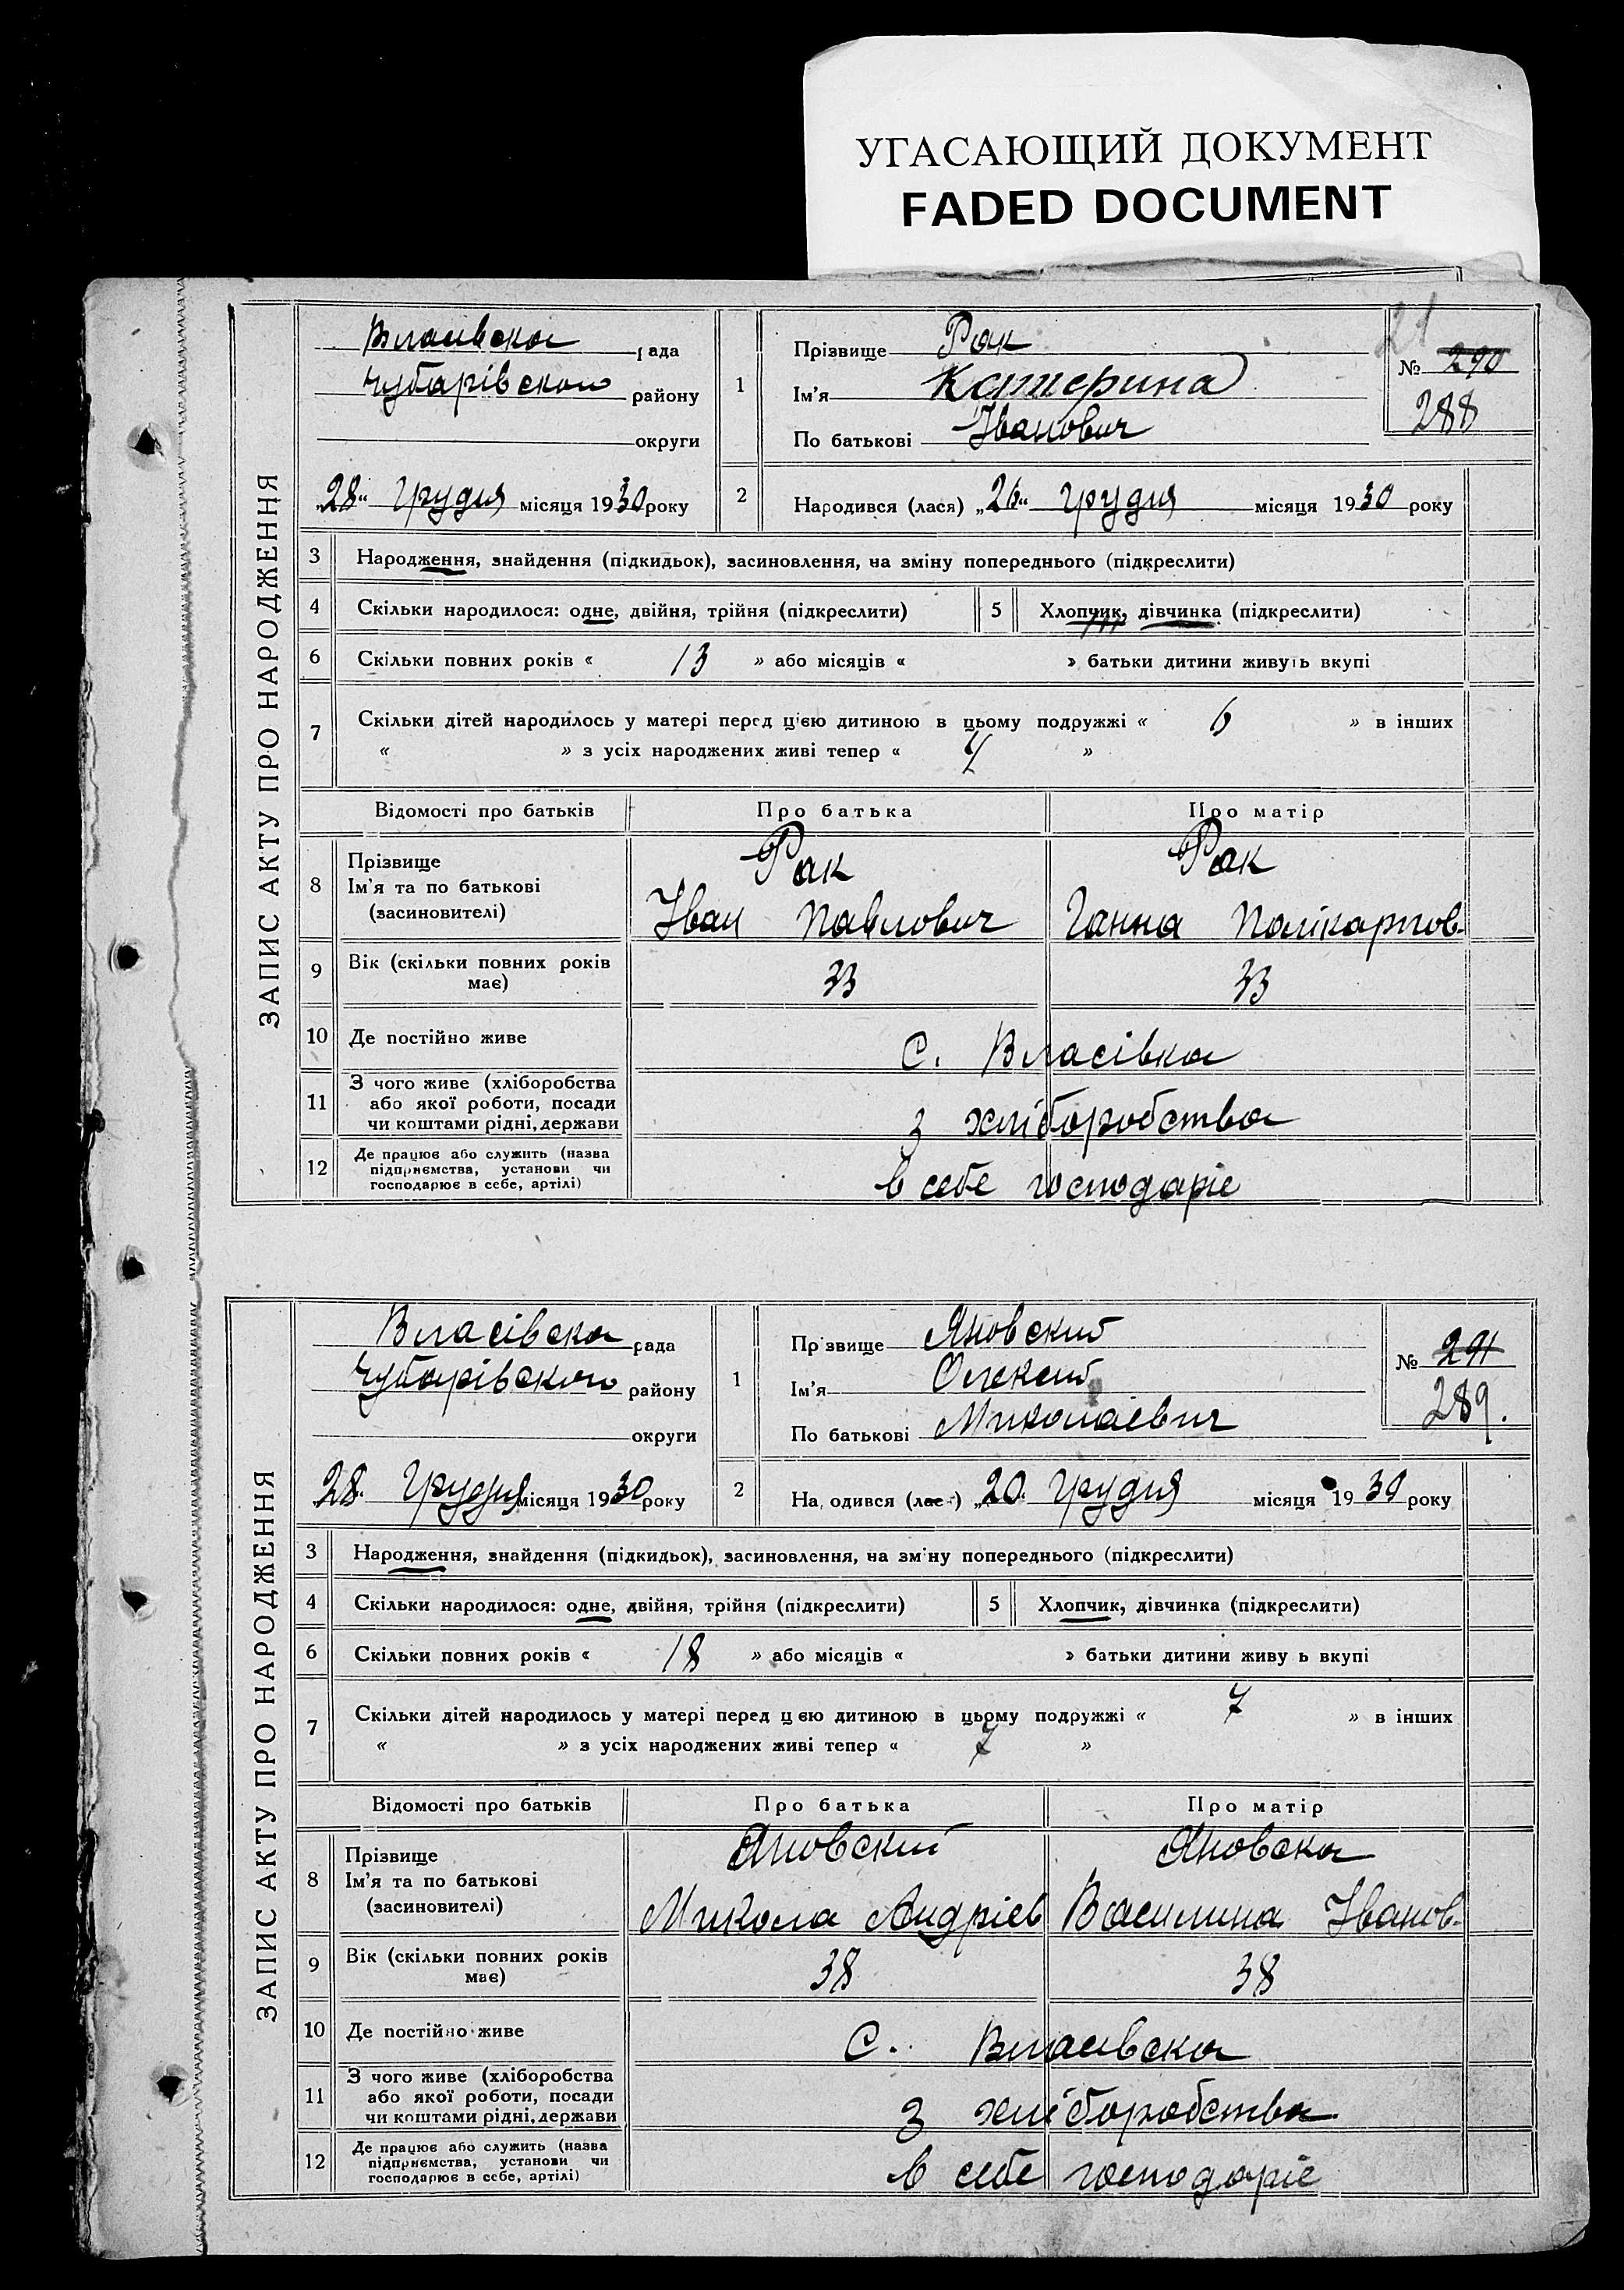 УГАСАЮЩИЙ ДОКУМЕНТ
FADED DOCUMENT
21
ЗАПИС АКТУ ПРО НАРОДЖЕННЯ
Власівска рада
Чубарівского району
округи
„28“ Грудня місяця 1930 року
1
Прізвище Рак
Ім'я Катерина
По батькові Іванович
№ 290
288
2
Народився (лася) „26“ Грудня місяця 1930 року
3 Народження, знайдення (підкидьок), засиновлення, на зміну попереднього (підкреслити)
4 Скільки народилося: одне, двійня, трійня (підкреслити) 5 Хлопчик, дівчинка (підкреслити)
6 Скільки повних років « 13 » або місяців « » батьки дитини живуть вкупі
7 Скільки дітей народилось у матері перед цією дитиною в цьому подружжі « 6 » в інших
« » з усіх народжених живі тепер « 4 »
Відомості про батьків Про батька Про матір
8 Прізвище
Ім'я та по батькові
(засиновителі)
Рак
Іван Павлович
Рак
Ганна Полікарпов-
9 Вік (скільки повних років
має)
33 33
10 Де постійно живе С. Власівка
11 З чого живе (хліборобства
або якої роботи, посади
чи коштами рідні, держави
з хліборобства
12 Де працює або служить (назва
підприємства, установи чи
господарює в себе, артілі)
в себе господаріє
ЗАПИС АКТУ ПРО НАРОДЖЕННЯ
Власівска рада
Чубарівского району
округи
„28. Грудня місяця 1930 року
1
Прізвище Яновский
Ім'я Олексій
По батькові Миколаєвич
№ 291
289.
2
Народився (лася) „20. Грудня місяця 1930 року
3 Народження, знайдення (підкидьок), засиновлення, на зміну попереднього (підкреслити)
4 Скільки народилося: одне, двійня, трійня (підкреслити) 5 Хлопчик, дівчинка (підкреслити)
6 Скільки повних років « 18 » або місяців « » батьки дитини живуть вкупі
7 Скільки дітей народилось у матері перед цією дитиною в цьому подружжі « 7 » в інших
« » з усіх народжених живі тепер « 7 »
Відомості про батьків Про батька Про матір
8 Прізвище
Ім'я та по батькові
(засиновителі)
Яновский
Микола Андрієв
Яновска
Василина Іванов-
9 Вік (скільки повних років
має)
38 38
10 Де постійно живе С. Власівска
11 З чого живе (хліборобства
або якої роботи, посади
чи коштами рідні, держави
з хліборобства
12 Де працює або служить (назва
підприємства, установи чи
господарює в себе, артілі)
в себе господаріє